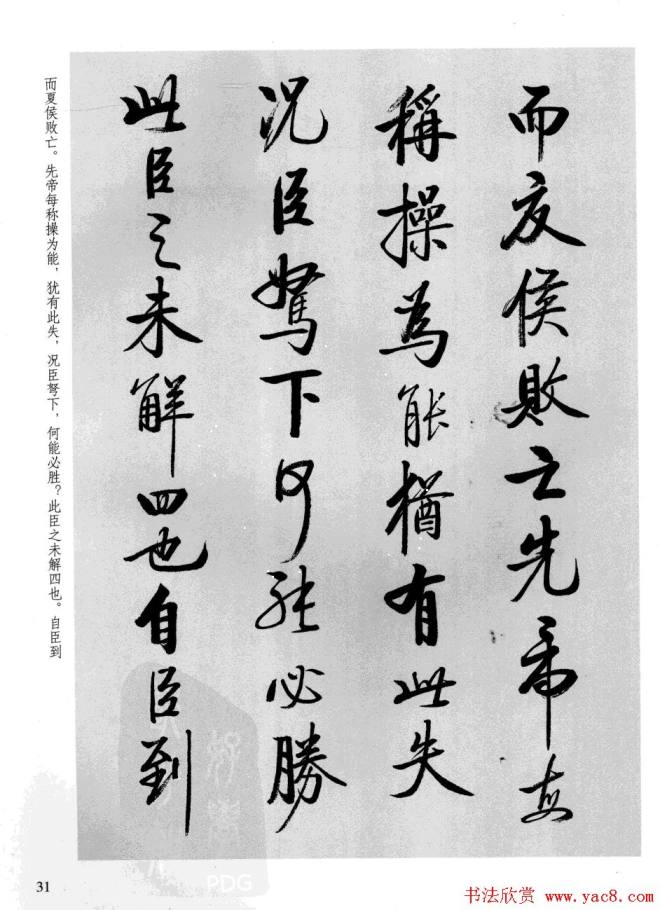 而夏侯敗亡先帝每
稱操為能猶有此失
況臣駑下何能必勝
此臣之未解四也自臣到
而夏侯败亡。先帝每称操为能，犹有此失，况臣弩下，何能必胜？此臣之未解四也。自臣到
31
PDG
书法欣赏 www.yac8.com